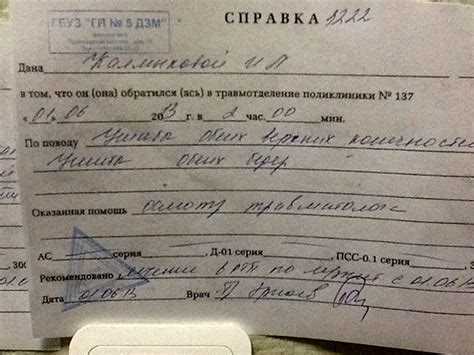 ГБУЗ "ГП № 5 ДЗМ"
СПРАВКА 1222
Дана Калмыковой И П
в том, что он (она) обратился (ась) в травмотделение поликлиники № 137
" 01 " 06 2013 г. в 2 час. 00 мин.
По поводу Ушиба обеих верхних конечностей
Ушиба обеих бедер
Оказанная помощь осмотр травматолога
АС серия Д-01 серия ПСС-0.1 серия
Рекомендовано лечение в по м/ж с 01.06.13
Дата 01.06.13 Врач